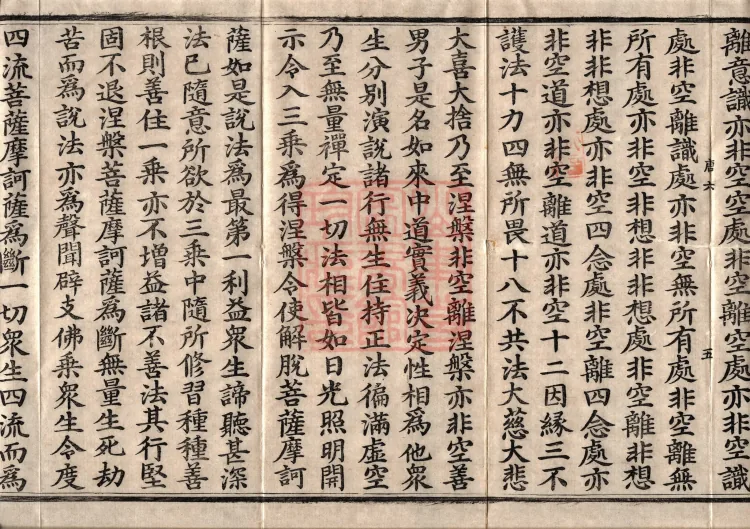 離意識亦非空空處非空離空處亦非空識
唐六
五
處非空離識處亦非空無所有處非空離無
所有處亦非空非非想處非空離非非想
非非想處亦非空四念處非空離四念處亦
非空道亦非空離道亦非空十二因縁三不
護法十力四無所畏十八不共法大慈大悲
大喜大捨乃至涅槃非空離涅槃亦非空善
男子是名如來中道實義決定性相爲他衆
生分別演說諸行無生住持正法徧滿虛空
乃至無量禪定一切法相皆如日光照明開
示令入三乘爲得涅槃令使解脫菩薩摩訶
薩如是說法爲最第一利益衆生諦聽甚深
法已隨意所欲於三乘中隨所修習種種善
根則善住一乘亦不增益諸不善法其行堅
固不退涅槃菩薩摩訶薩爲斷無量生死劫
苦而爲說法亦爲聲聞辟支佛乘衆生令度
四流菩薩摩訶薩爲斷一切衆生四流而爲